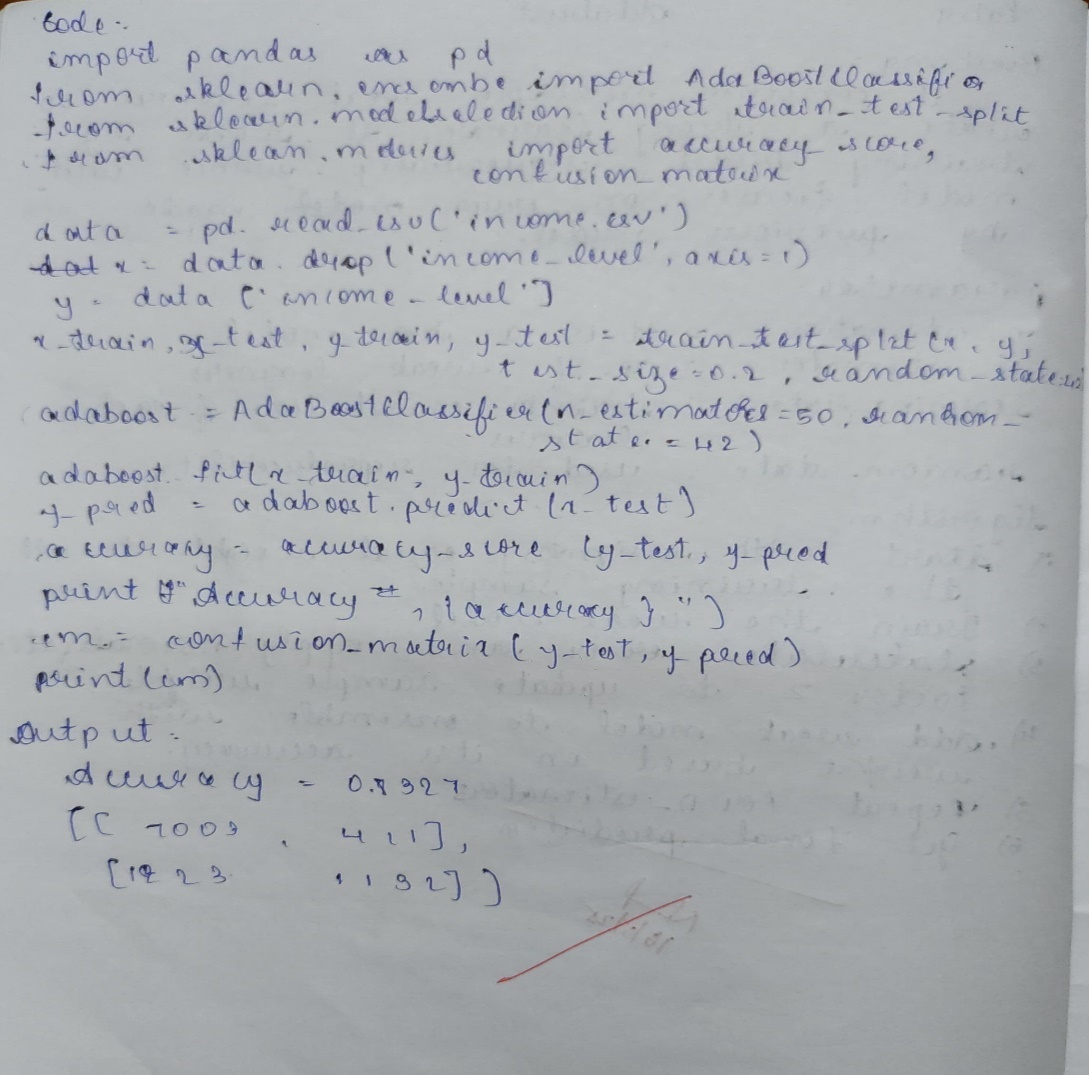 Code:-
import pandas as pd
from sklearn. ensombe import AdaBoostClassifier
from sklearn. modelseledion import train_test_split
from sklean. metrics import accuracy score,
confusion_matrix
data = pd. read_csv('income.csv')
x = data. drop ('income_level', axis=1)
y = data ['income_level']
x_train, x_test, y train, y_test = train_test_split (x, y,
test_size=0.2, random_state=
adaboost = AdaBoostClassifier(n_estimators=50, random_
state = 42)
adaboost. fit(x_train, y_train)
y_pred = adaboost.predict (x_test)
accuracy = accuracy_score (y_test, y_pred
print f" Accuracy =, {accuracy } ")
cm = confusion_matrix ( y_test, y_pred)
print (cm)
Output:
Accuracy = 0.8327
[[ 7003, 411],
[1223 1192] ]